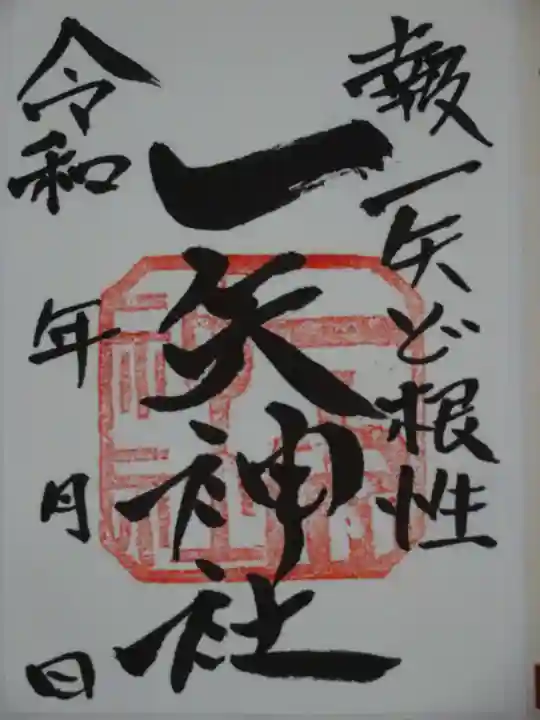 報一矢ど根性
一矢神社
令和 年 月 日